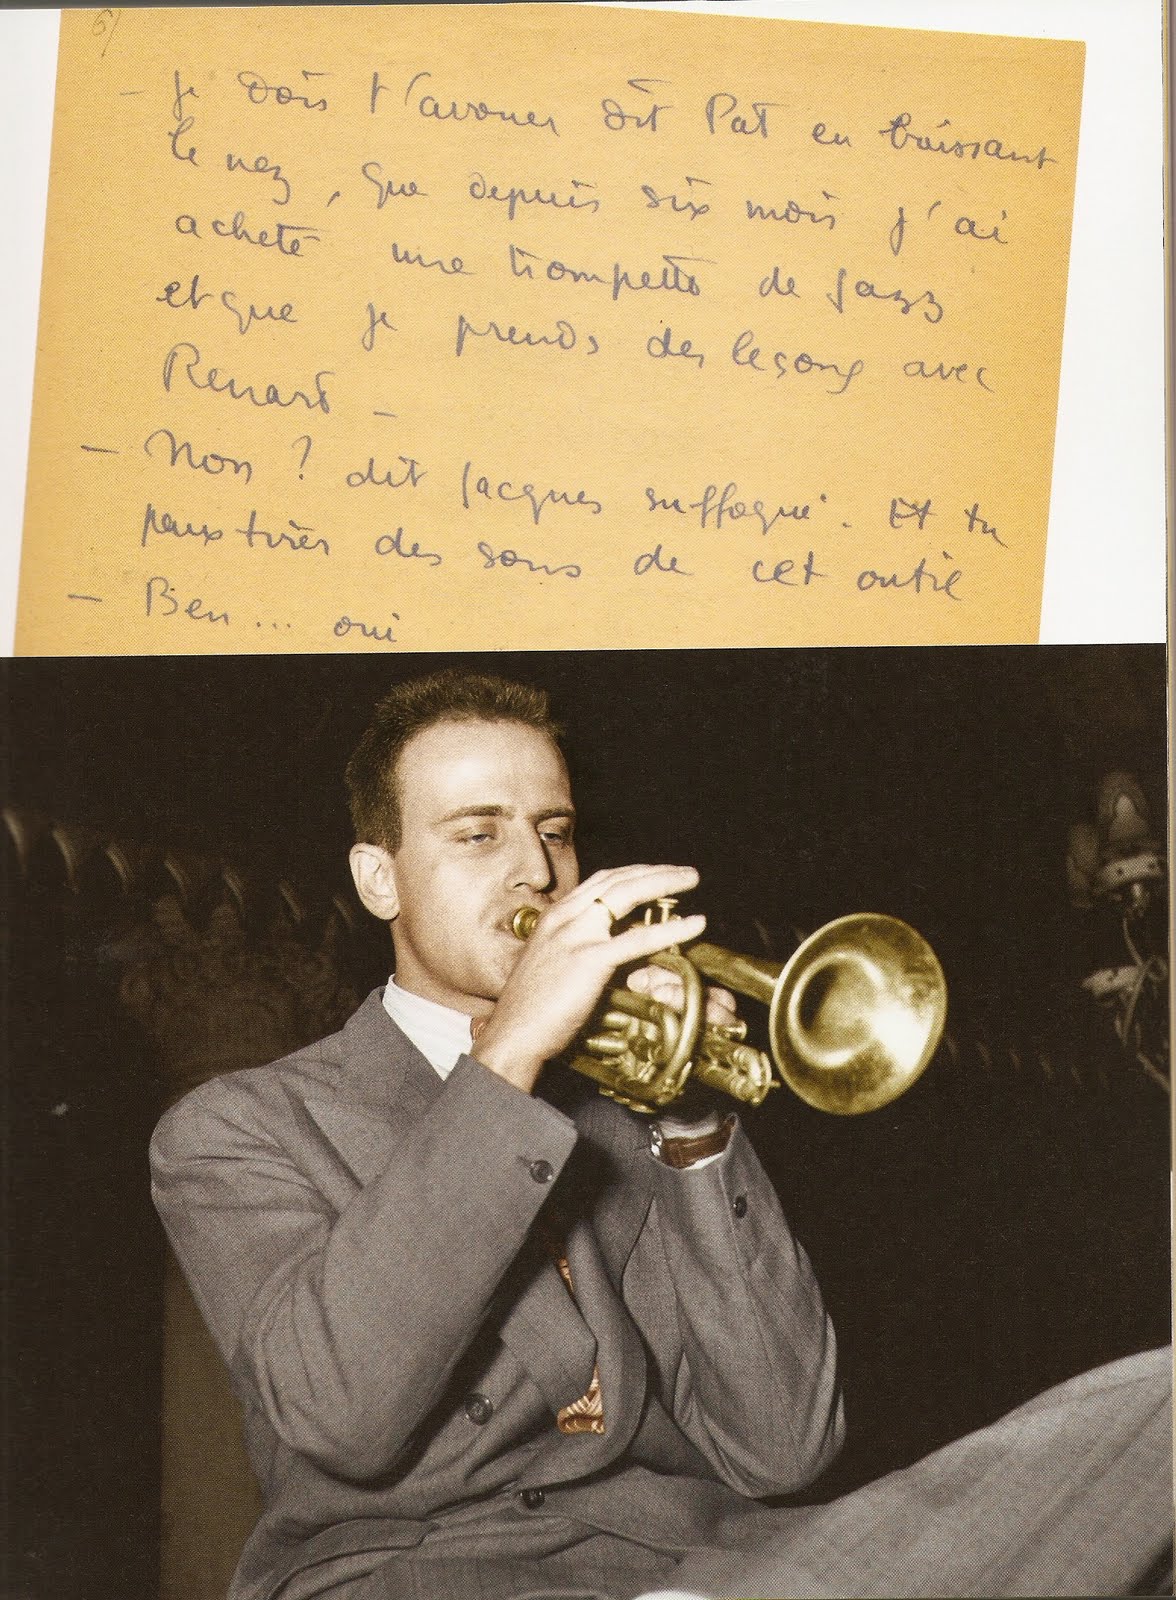 6/
- je dois t'avouer dit Pat en baissant
le nez, que depuis six mois j'ai
acheté une trompette de jazz
et que je prends des leçons avec
Renard -
- Non ? dit Jacques suffoqué. Et tu
peux tirer des sons de cet outil
- Ben... oui